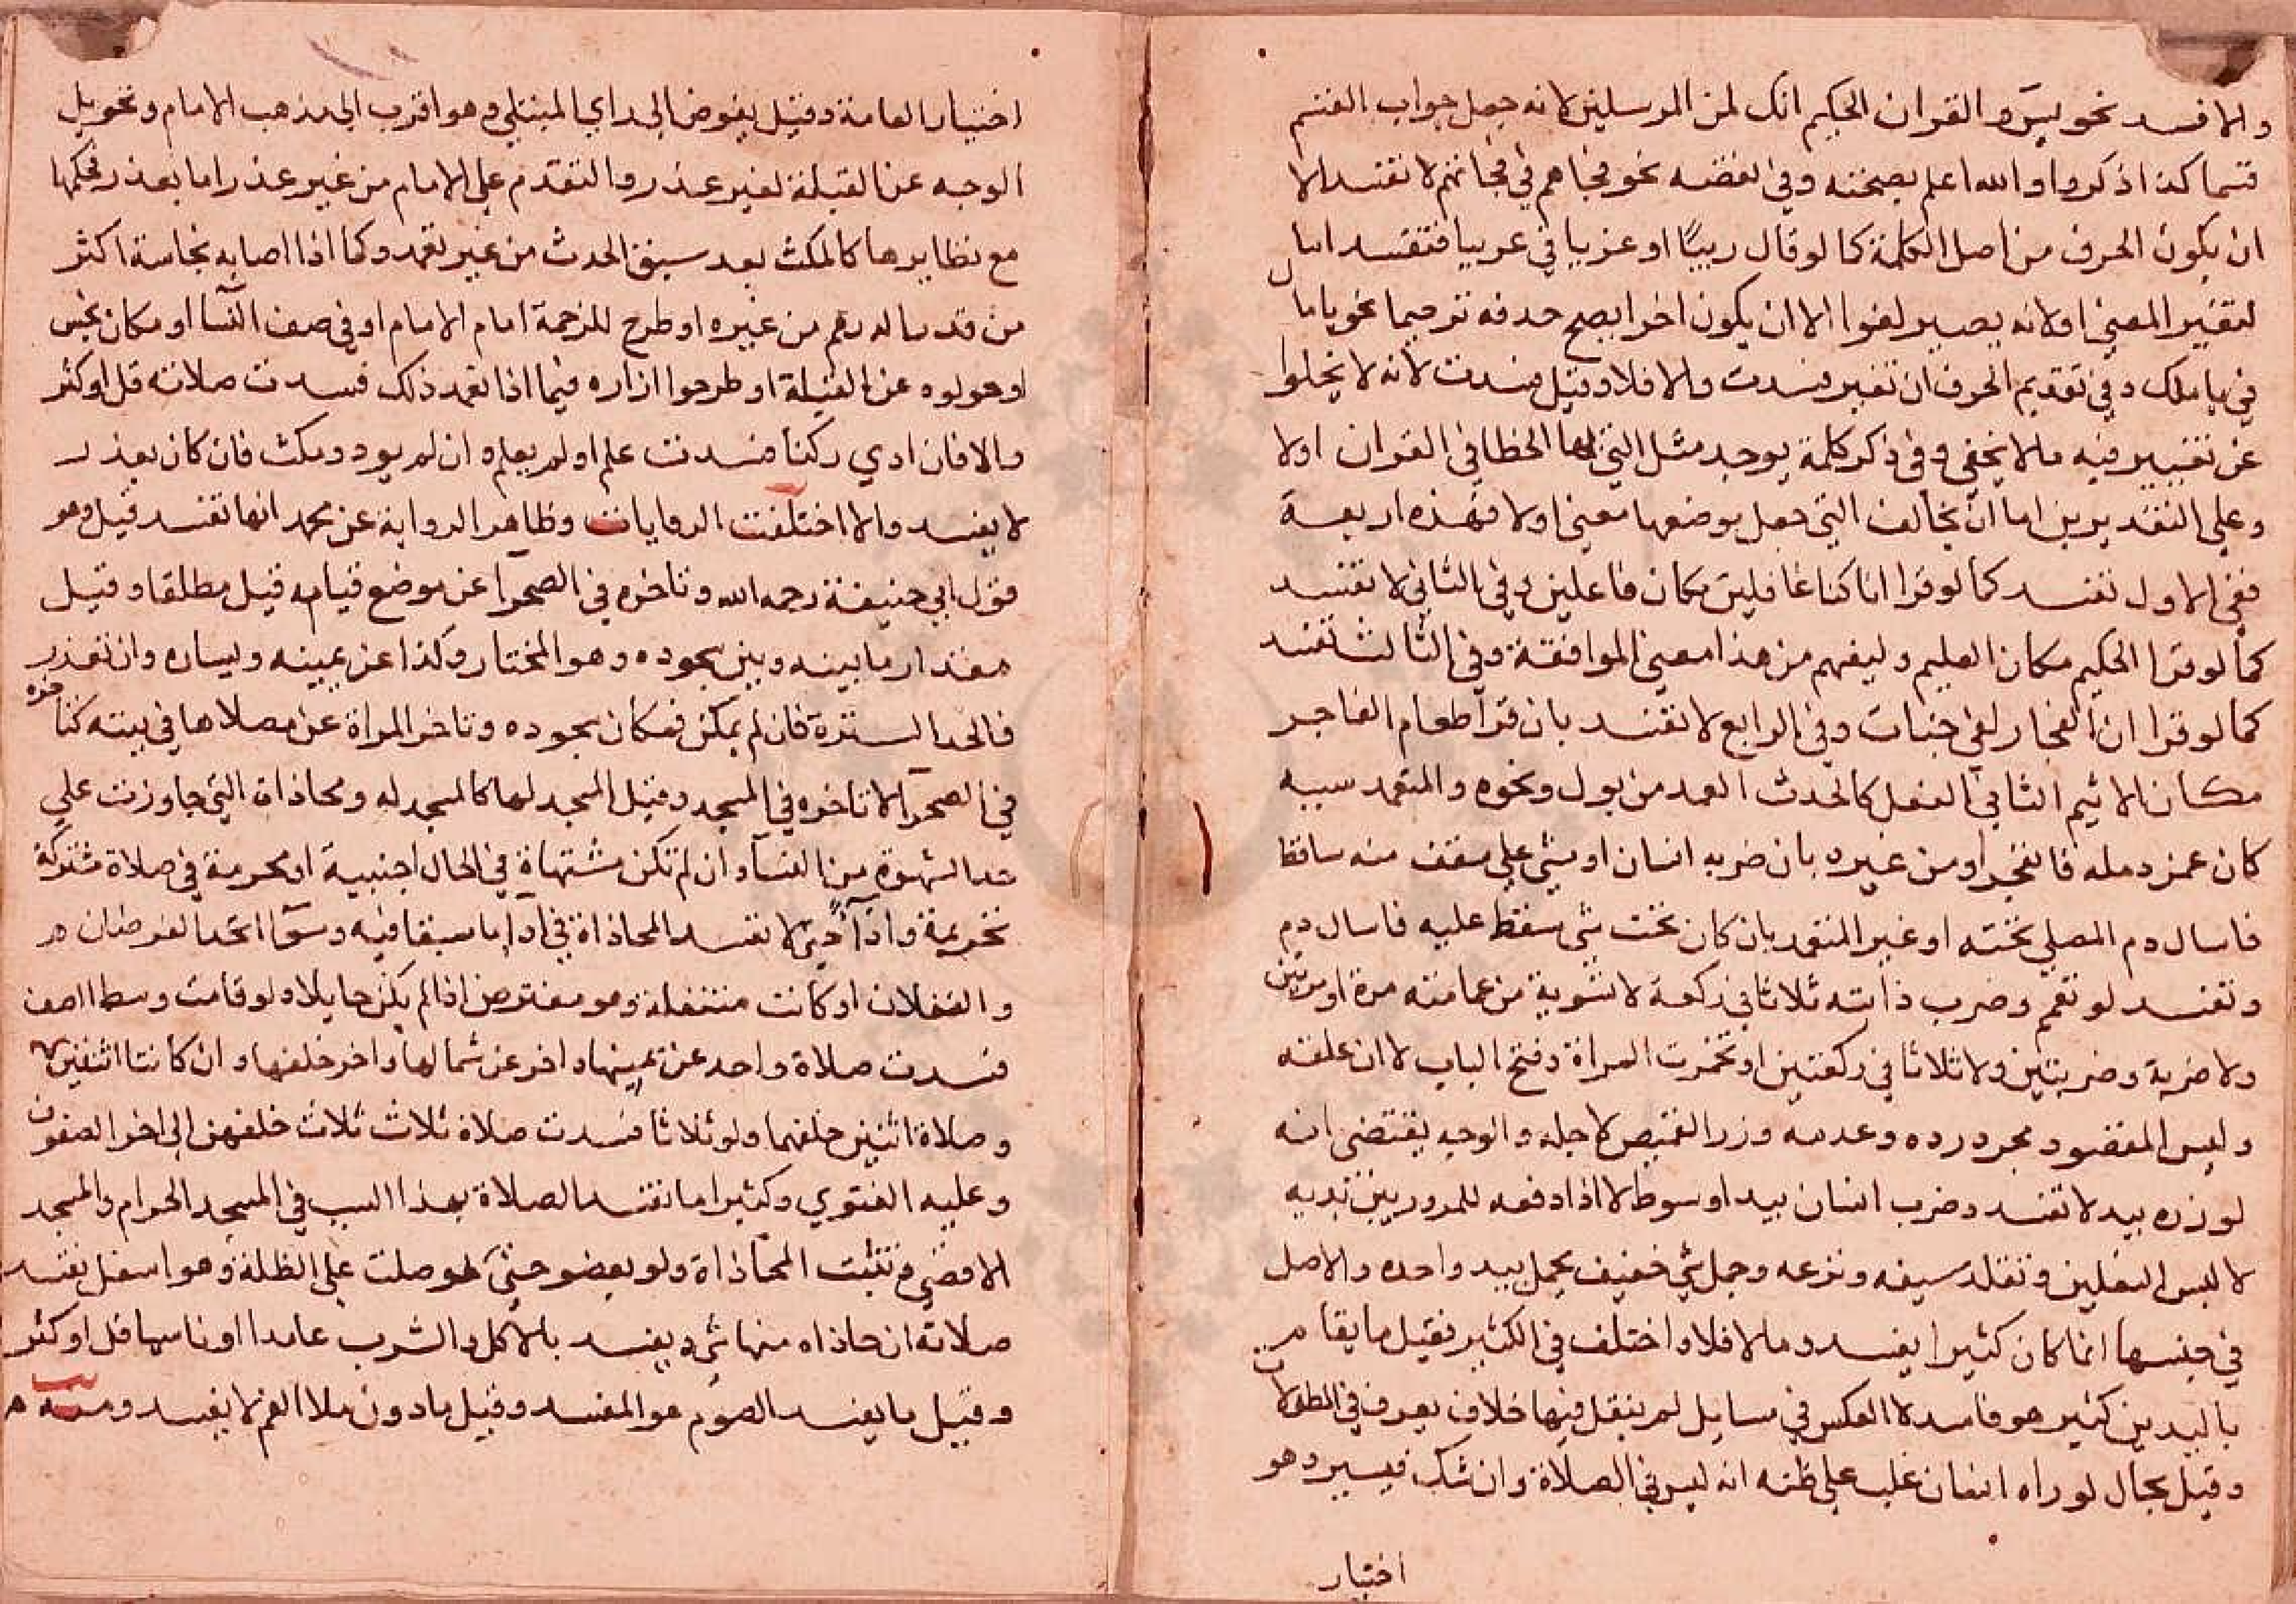 والا فسد نحو يس والقران الحكيم انك لمن المرسلين لانه جعل جواب القسم
قسما كذا ذكروا والله اعلم بصحته وفي نقضه نحو فجاهم في فجاتهم لا تفسد الا
ان يكون الحرف من اصل الكلمة كما لو قال ربيا او عزبيا في عربيا فتفسد اما
لتغير المعني او لانه يصير لغوا الا ان يكون اخرا يصح حدفه ترخيما نحو يا مال
في يا ملك وفي تقديم الحرف ان تغير فسدت والا فلا وقيل فسدت لانه لا يخلوا
عن تغيير وفيه ما لا يخفي وفي ذكر كلمة يوجد مثل التي لها الخطا في القران اولا
وعلي التقديرين اما ان يخالف التي جعل بوضعها معني اولا فهذه اربعة
ففي الاول تفسد كما لو قرا انا كنا غافلين مكان فاعلين وفي الثاني لا تفسد
كما لو قرا الحكيم مكان العليم وليفهم من هذا معني الموافقة وفي الثالث تفسد
كما لو قرا ان الفجار لفي جنات وفي الرابع لا تفسد بان قرا طعام الفاجر
مكان الاثيم الثاني الفعل كالحدث العمد من بول ونحوه والمتعمد سببه
كان غمز دمله فانفجر او من غيره بان ضربه انسان او مشي علي سقف منه ساقط
فاسال دم المصلي تحته او غير المتعمد بان كان تحت شي سقط عليه فاسال دم
وتفسد لو تعمم وضرب دابته ثلاثا في ركعة لا تسوية من عمامته مرة او مرتين
ولا ضربة وضربتين ولا ثلاثا في ركعتين او تخمرت المراة وفتح الباب لا ان غلقه
وليس المقصود مجرد رده وعدمه وزر القميص لاجله والوجه يقتضي انه
لو زره بيد لا تفسد وضرب انسان بيد او سوط لا اذا دفعه للمرور بين يديه
لا لبس النعلين وتقلد سيفه ونزعه وحمل شي خفيف يحمل بيد واحده والاصل
في جنسها انما كان كثيرا يفسد وما لا فلا واختلف في الكثير فقيل ما يقام
باليدين كثير هو فاسد لا العكس في مسايل لم ينقل فيها خلاف يعرف في المطولات
وقيل بحال لو راه انسان غلب علي ظنه انه ليس في الصلاة وان شك فيسير وهو
اختيار
اختيار العامة وقيل يفوض الي راي المبتلي وهو اقرب الي مذهب الامام وتحويل
الوجه عن القبلة لغير عذر والتقدم علي الامام من غير عذر اما بعذر فحكمها
مع نظايرها كالمكث بعد سبق الحدث من غير تعمد وكما اذا اصابه نجاسة اكثر
من قدر ماله درهم من غيره او طرح للزحمة امام الامام او في صف النسا او مكان نجس
او حولوه عن القبلة او طرحوا ازاره فيما اذا تعمد ذلك فسدت صلاته قل او كثر
والا فان ادي ركنا فسدت علم او لم يعلم وان لم يود ومكث فان كان بعذر
لا يفسد والا اختلفت الروايات وظاهر الرواية عن محمد انها تفسد قيل وهو
قول ابي حنيفة رحمه الله وتاخره في الصحرا عن موضع قيامه قيل مطلقا وقيل
مقدار ما بينه وبين سجوده وهو المختار وكذا عن يمينه ويساره وان تعذر
فالحد السترة فان لم يمكن فمكان سجوده وتاخر المراة عن مصلاها في بيته كتاخره
في الصحرا لا تاخره في المسجد وقيل المسجد لها كالمسجد له ومحاذاة التي جاوزت علي
حد الشهوة من النسا وان لم تكن مشتهاة في الحال اجنبية او محرمة في صلاة مشتركة
تحريمة واداء حتي لا تفسد المحاذاة في ادا ما سبقا فيه وسوا اتحد الفرضان
والنفلان او كانت متنفلة وهو مفترض اذا لم يكن حايلا ولو قامت وسط الصف
فسدت صلاة واحد عن يمينها واخر عن شمالها واخر خلفها وان كانتا اثنتين
وصلاة اثنين خلفهما ولو ثلاثا فسدت صلاة ثلاث ثلاث خلفهن الي اخر الصفوف
وعليه الفتوي وكثيرا ما تفسد الصلاة بهذا السبب في المسجد الحرام والمسجد
الاقصي وتثبت المحاذاة ولو بعضو حتي لو صلت علي الظلة وهو اسفل تفسد
صلاته ان حاذاه منها شي ويفسد بالاكل والشرب عامدا او ناسيا قل او كثر
وقيل ما يفسد الصوم هو المفسد وقيل ما دون ملا الفم لا يفسد